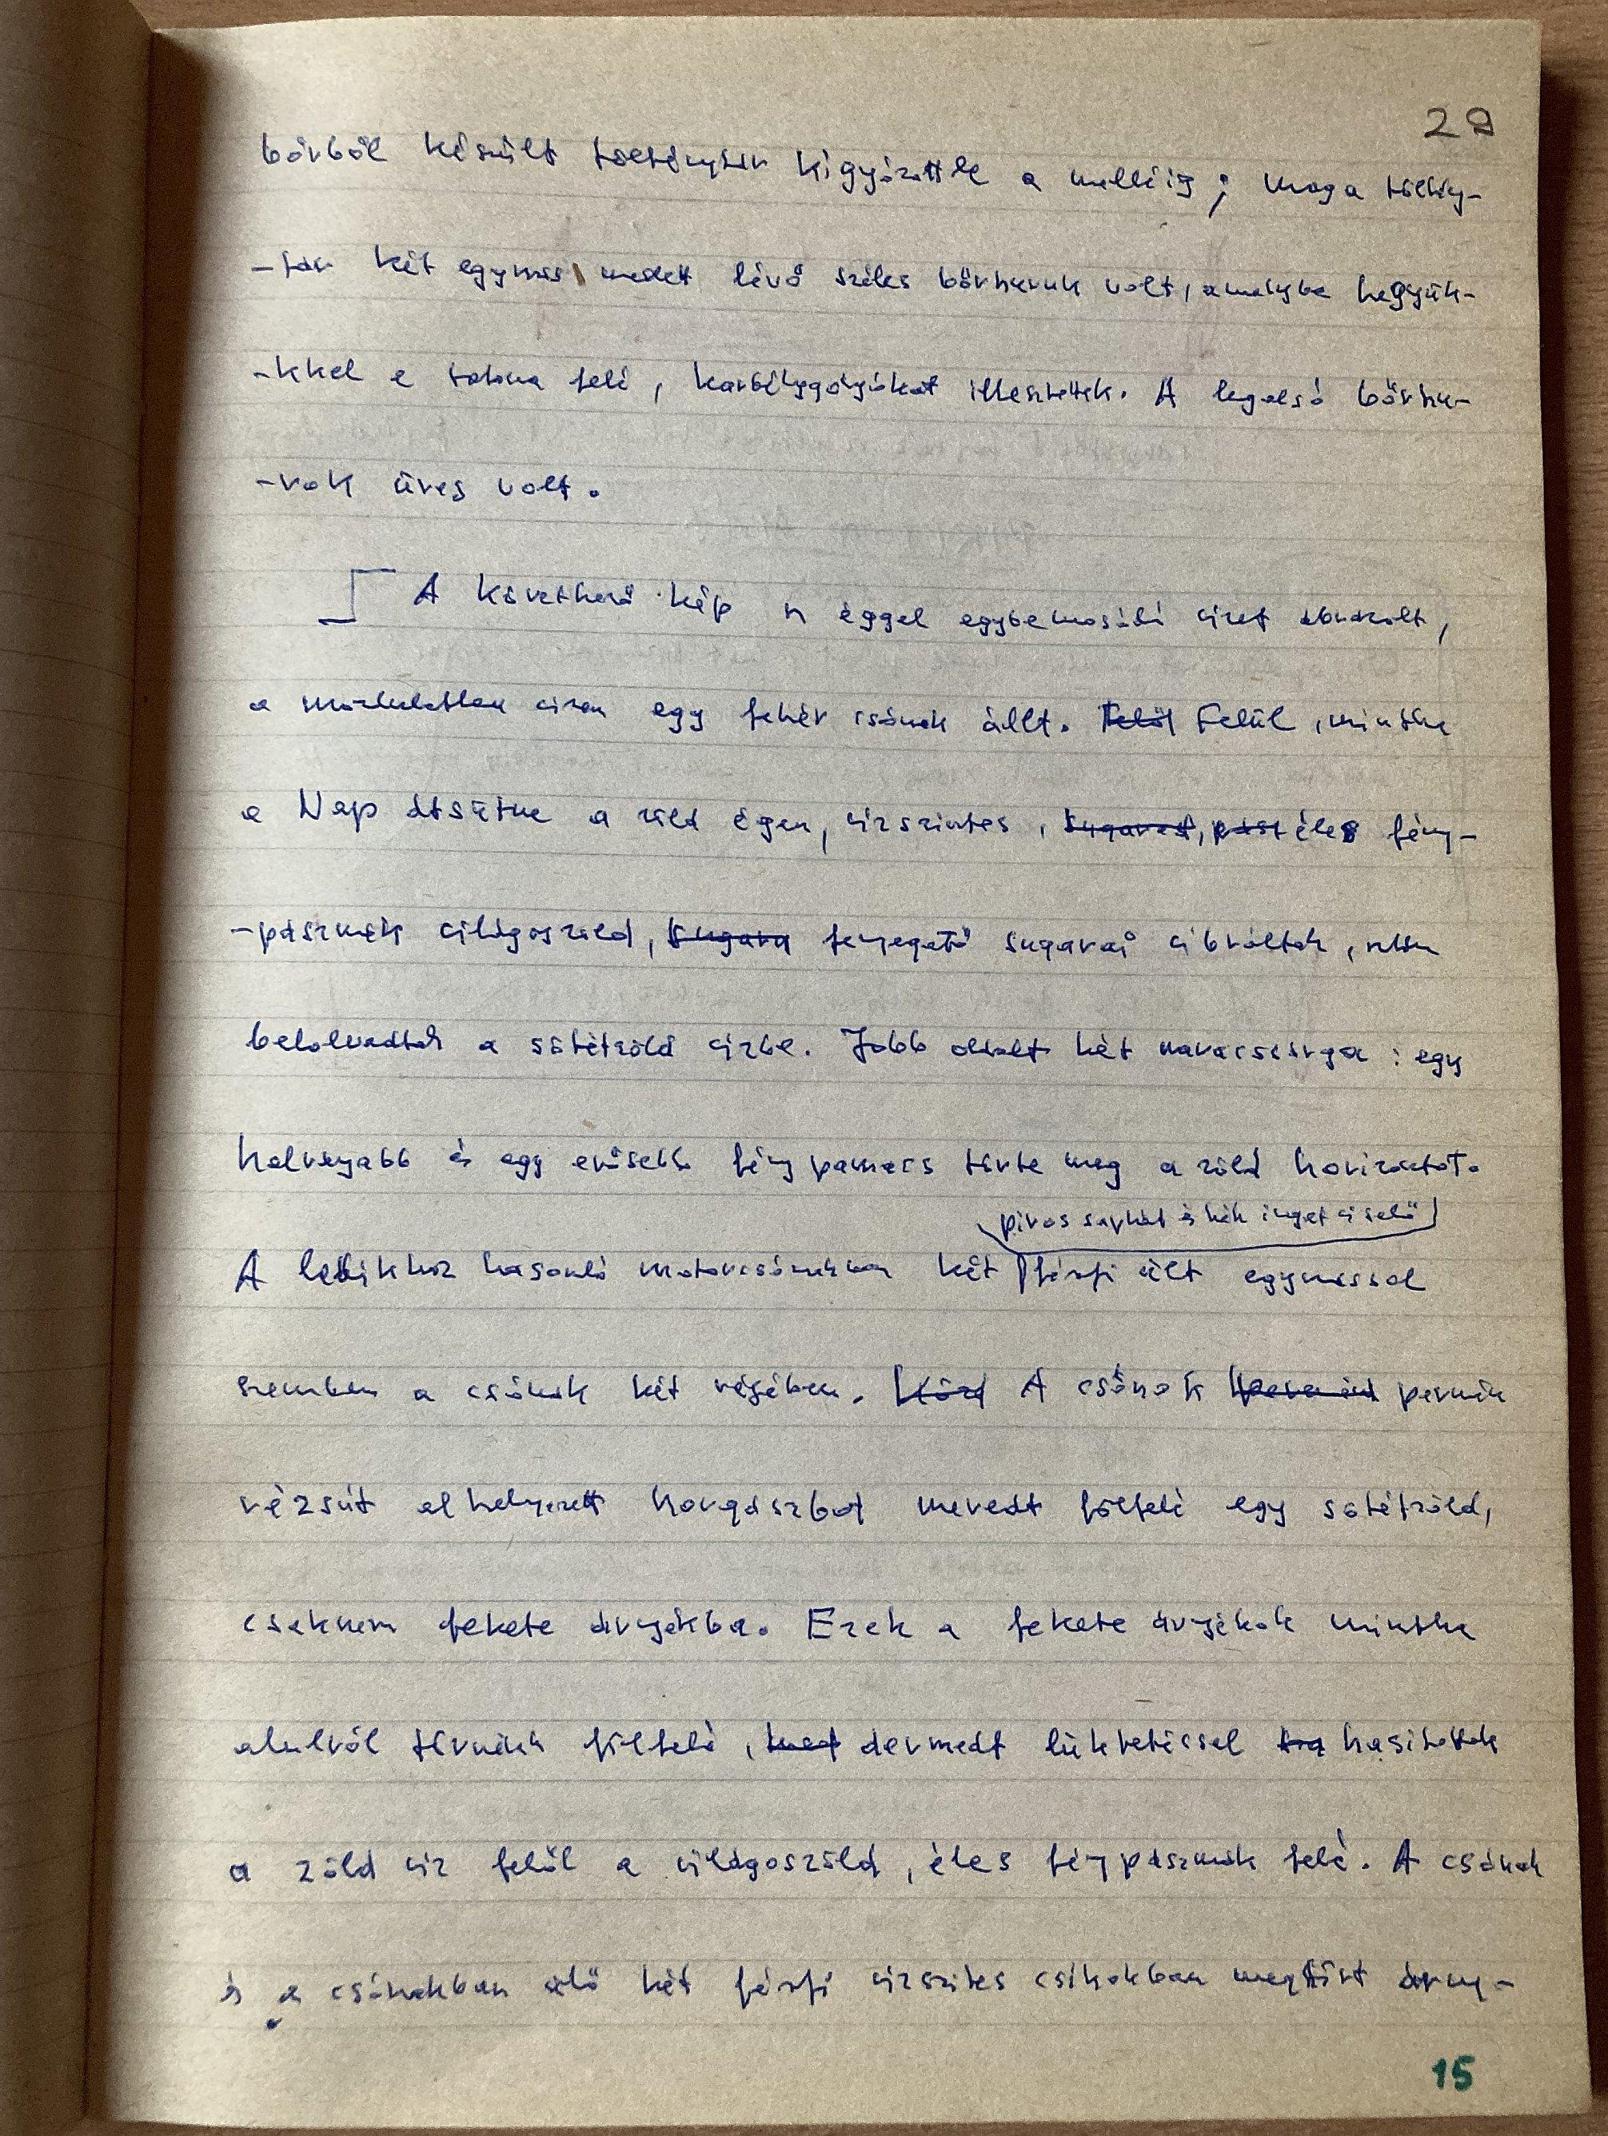 29
bőrből készült tölténytár kígyózott le a melléig; maga töltény-
-tár két egymás mellett lévő széles bőrhurok volt, amelybe hegyük-
-kkel a torna felé, karbélygolyókat illesztettek. A legalsó bőrhu-
-rok üres volt.
A következő kép az éggel egybemosódó vizet ábrázolt,
a mozdulatlan vizen egy fehér csónak állt. Felől Felül, mintha
a Nap átsütne a zöld égen, vízszintes, sugarast, pászt éles fény-
-pászmák világoszöld, sugara fenyegető sugarai vibráltak, aztán
belolvadtak a sötétzöld vízbe. Jobb oldalt két narancssárga: egy
halványabb és egy erősebb fény pamacs törte meg a zöld horizontot.
piros sapkát és kék inget viselő
A ladikhoz hasonló motorcsónakban két férfi ült egymással
szemben a csónak két végében. Közd A csónak peremé peremén
rézsút elhelyezett horgászbot meredt fölfelé egy sötétzöld,
csaknem fekete árnyékba. Ezek a fekete árnyékok mintha
alulról törnének fölfelé, med dermedt lüktetéssel ha hasítottak
a zöld víz felől a világoszöld, éles fénypászmák felé. A csónak
és a csónakban ülő két férfi vízszintes csíkokban megtört árny-
15